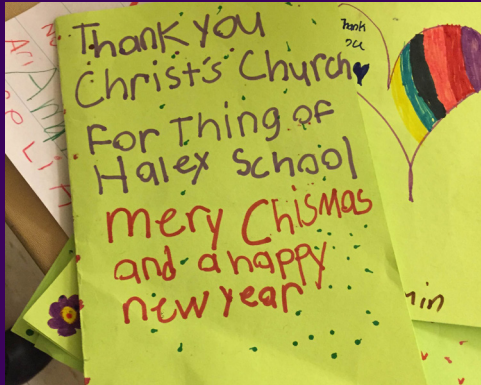 Thank you
Christ's Church
For Thing of
Halex School
mery Chismas
and a happy
new year
Thank
min